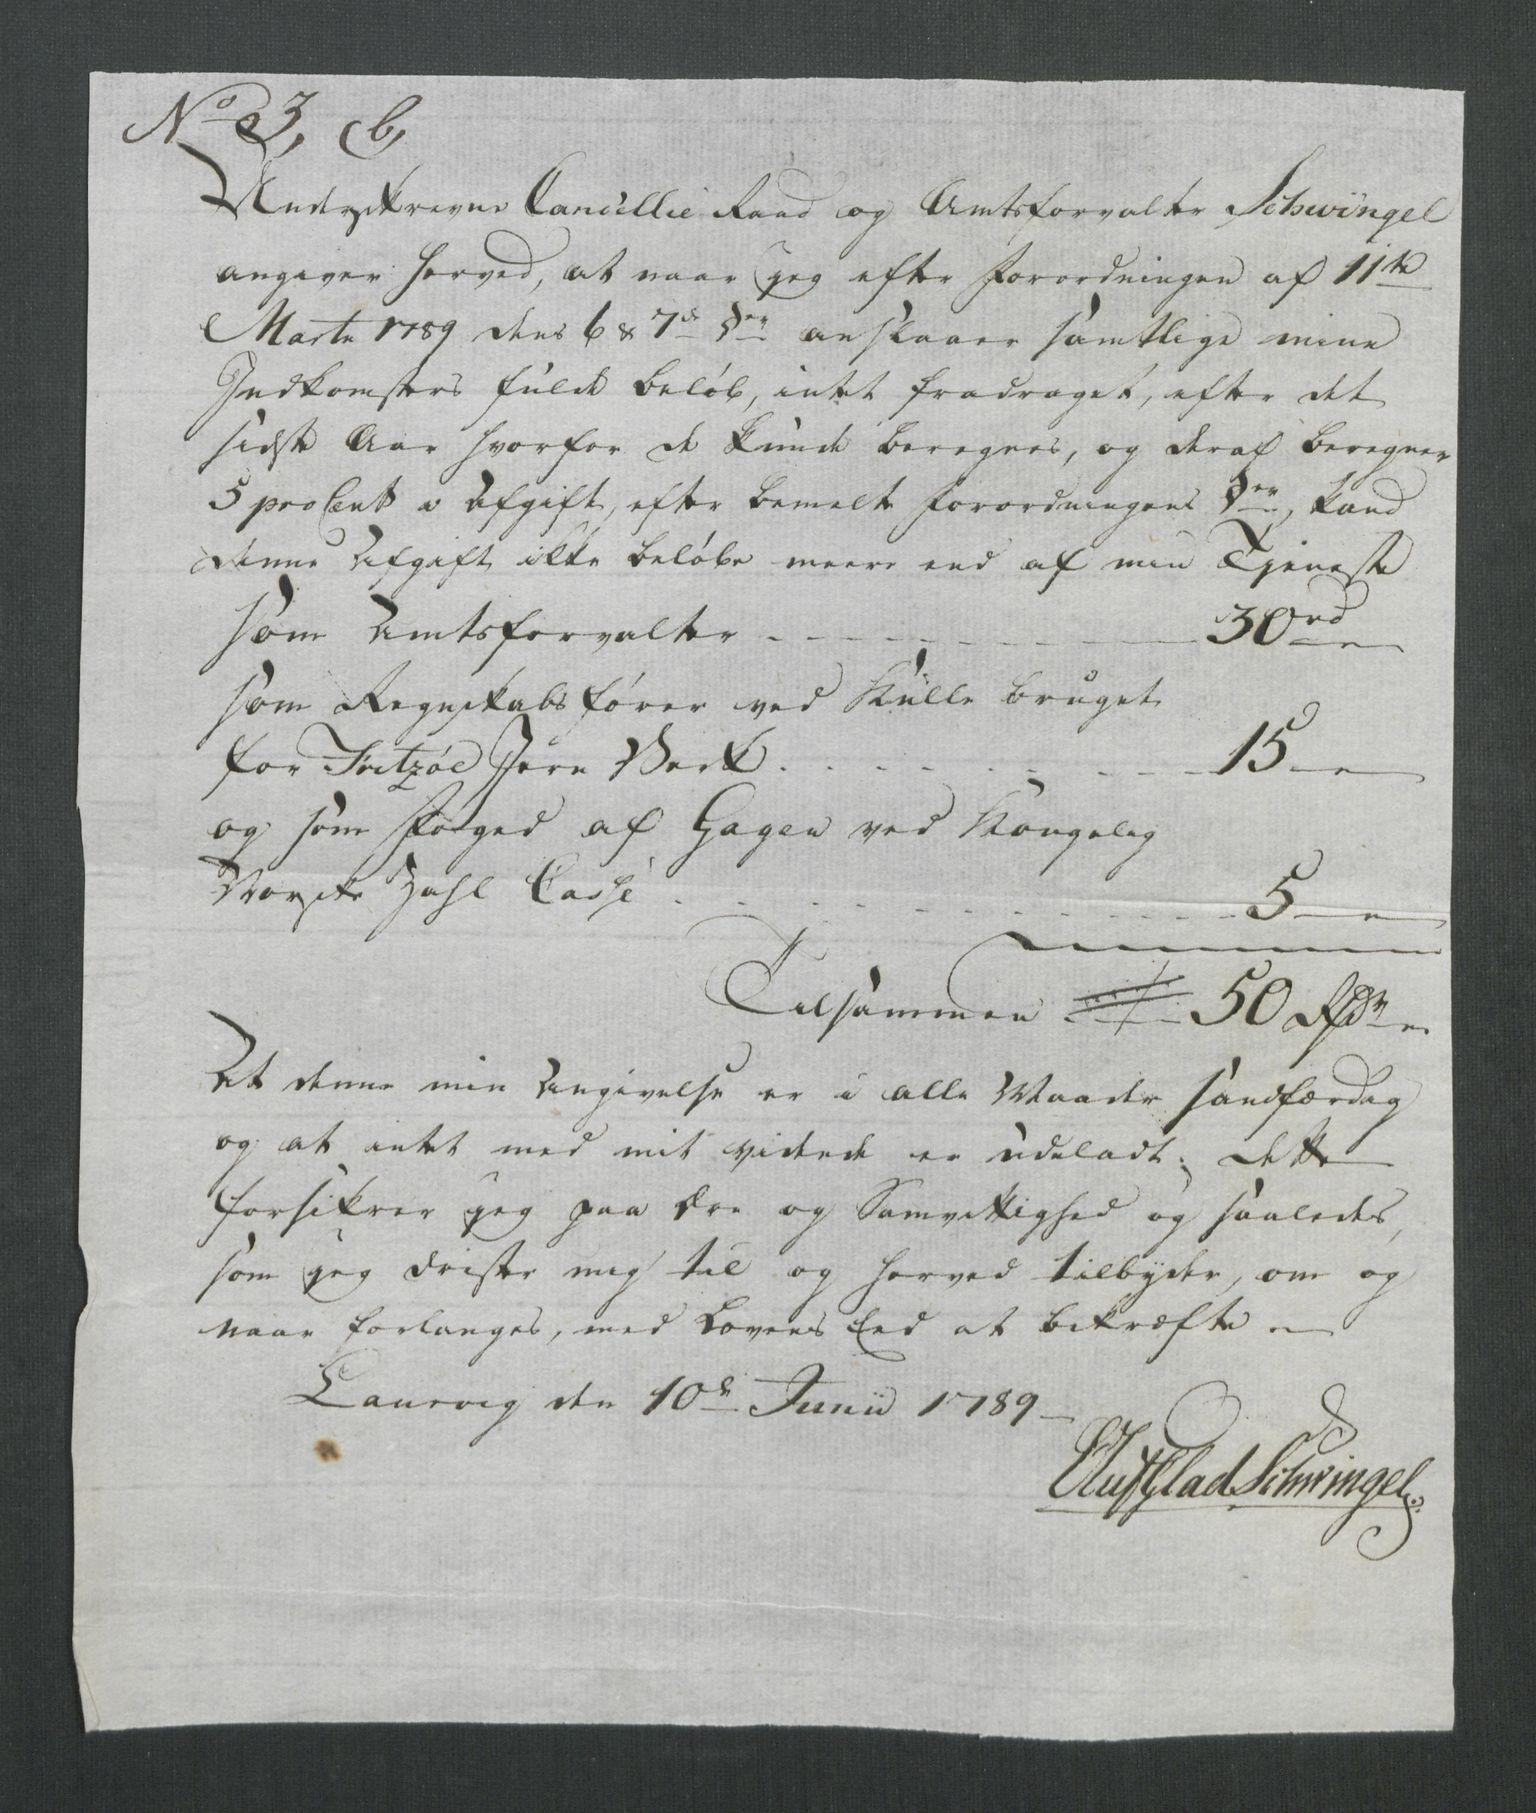 No 3, b,
Underskrevne Cancellie Raad og Amtsforvalter Schwingel
angiver herved, at naar jeg efter Forordningen af 11te
Martii 1789 dens 6 & 7de §er anslaaer samtlige mine
Indkomsters fulde beløb, intet fradraget, efter det
sidste Aar hvorfor de kunde beregnes, og deraf beregner
5 proCent i Afgift, efter bemelte Forordningens §er, kand
denne Afgift ikke beløbe meere end af min Tjeneste
som Amtsforvalter 30 rd
som Regnskabsfører ved Kulle bruget
for Fritzöe Jern Verk 15
og som Foged af Gagen ved Kongelig
Norske Zahl Casse 5
Tilsammen 50 Rdr
At denne min Angivelse er i alle Maader sandfærdig
og at intet med mit vidende er udeladt; dette
forsikrer jeg paa Ære og Samvittighed og saaledes,
som jeg drister mig til og herved tilbyder, om og
naar forlanges, med Lovens Eed at bekræfte
Laurvig den 10de Junii 1789
Glad Schwingel